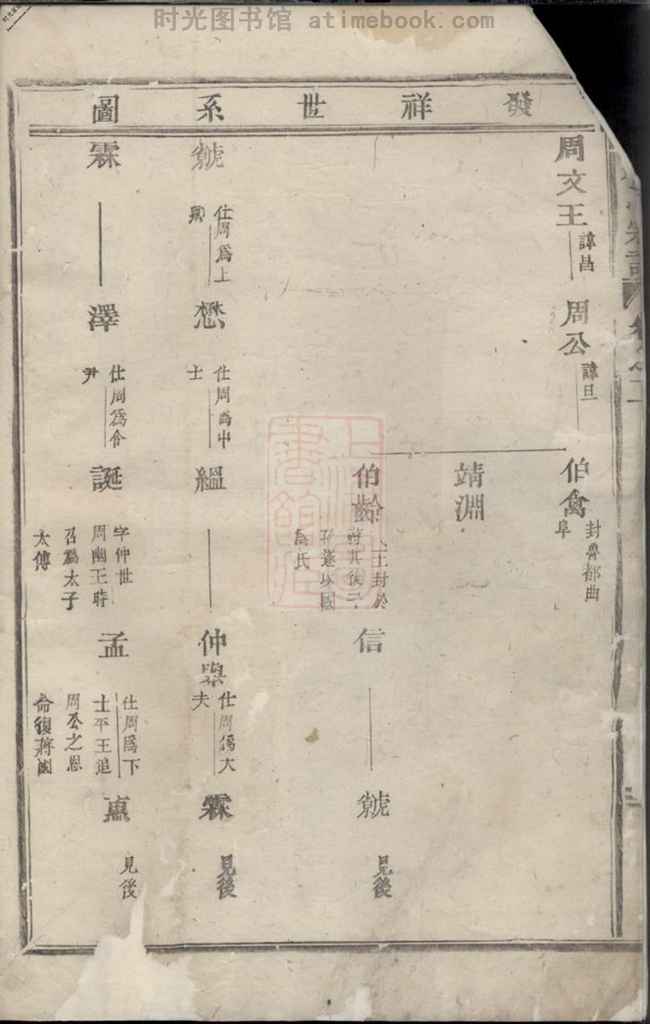 时光图书馆 - atimebook.com
發祥世系圖
周文王
諱昌
周公
諱旦
伯禽
封魯都曲
阜
靖淵
伯齡
王封於
蔣其後子
孫遂以國
為氏
信
號
見後
號
仕周為上
卿
愁
仕周為中
士
縕
仲
仕周為大
夫
霖
見後
霖
澤
仕周為令
尹
誕
字仲世
周幽王時
召為太子
太傅
孟
仕周為下
士平王追
周公之恩
命復蔣國
見後
卷之二